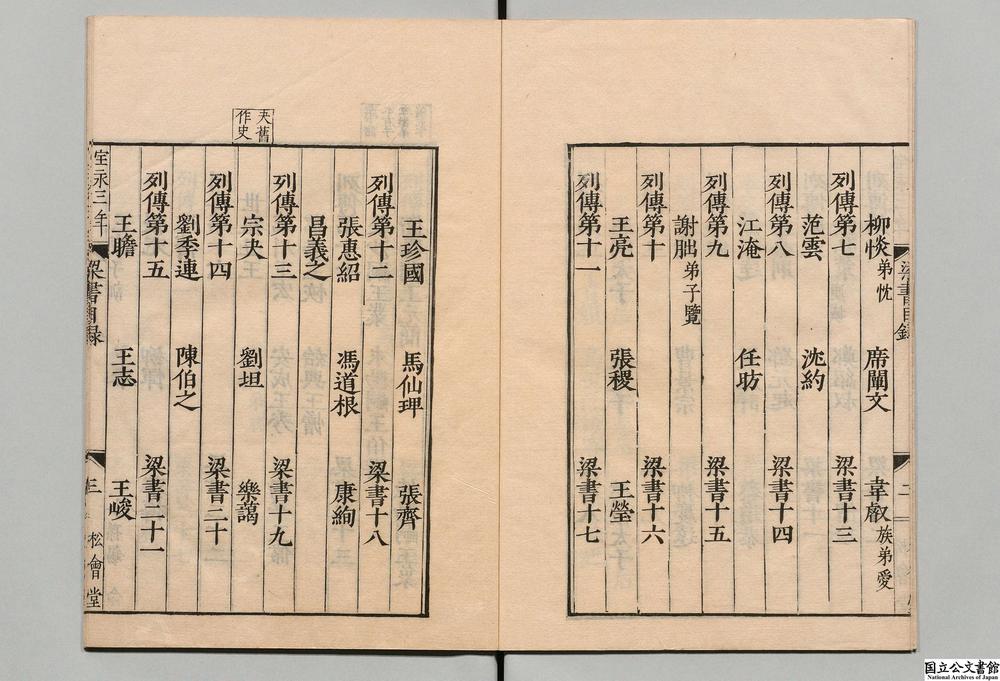 梁書目錄 二
柳惔弟忱 席闡文 韋叡族弟愛
列傳第七 梁書十三
范雲 沈約
列傳第八 梁書十四
江淹 任昉
列傳第九 梁書十五
謝朏弟子覽
列傳第十 梁書十六
王亮 張稷 王瑩
列傳第十一 梁書十七
王珍國 馬仙琕 張齊
列傳第十二 梁書十八
張惠紹 馮道根 康絢
昌義之
列傳第十三 梁書十九
夬舊
作史
宗夬 劉坦 樂藹
列傳第十四 梁書二十
劉季連 陳伯之
列傳第十五 梁書二十一
王瞻 王志 王峻
宝永三年 梁書目録 三 松會堂
国立公文書館
National Archives of Japan